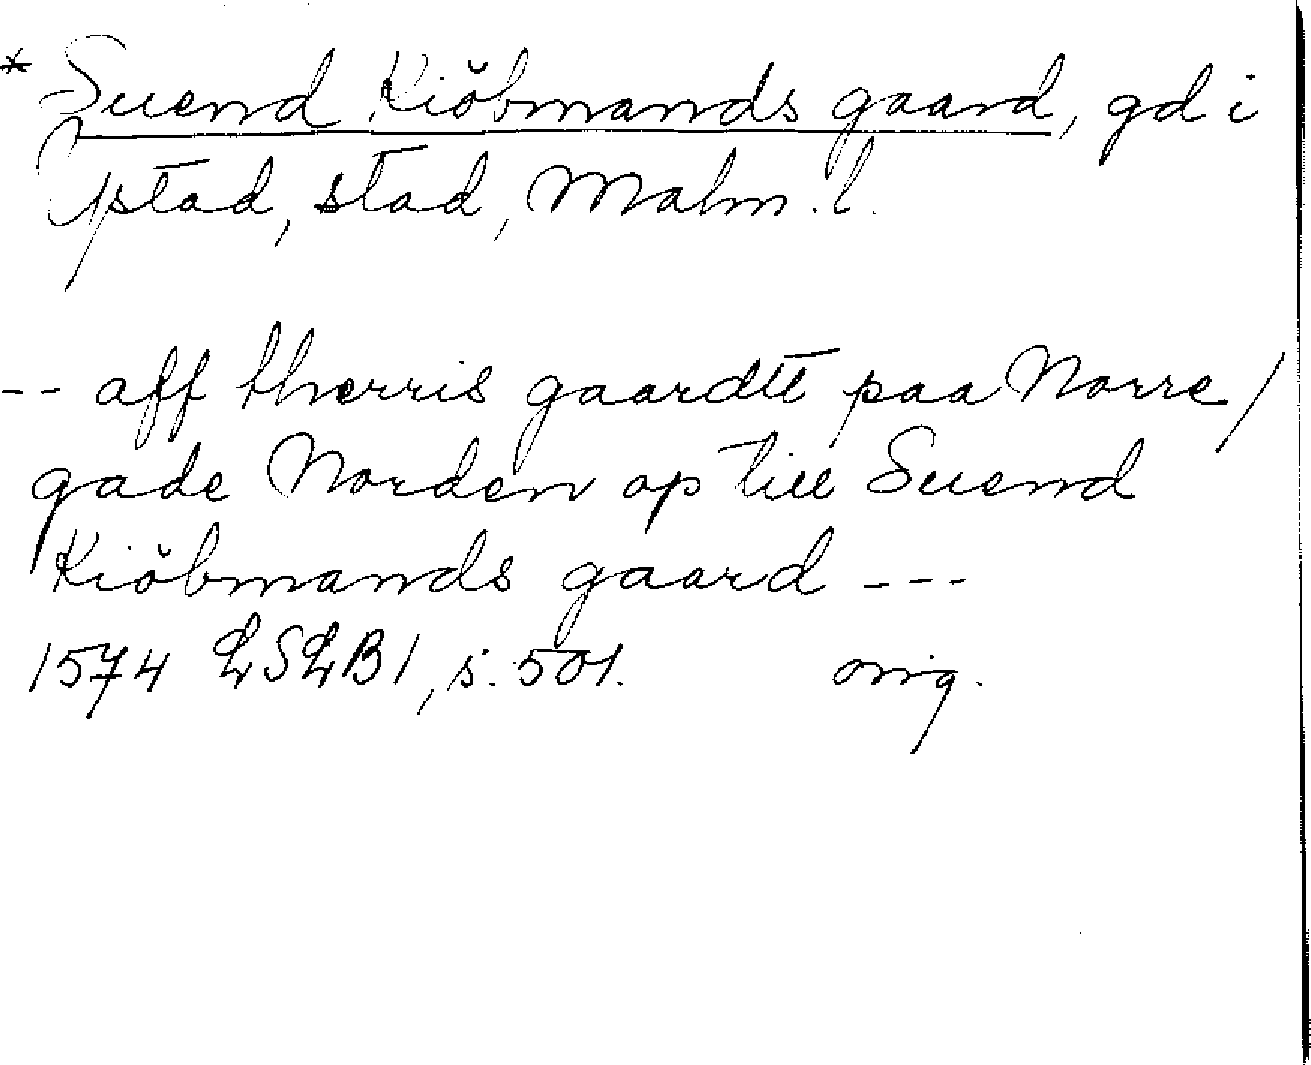 * Suend Kiöbmands gaard, gd i
Ystad, stad, Malm. l.
-- aff therris gaardtt paa Norre/
gade Norden op till Suend
Kiöbmands gaard ---
1574 LSLB1, s. 501. orig.